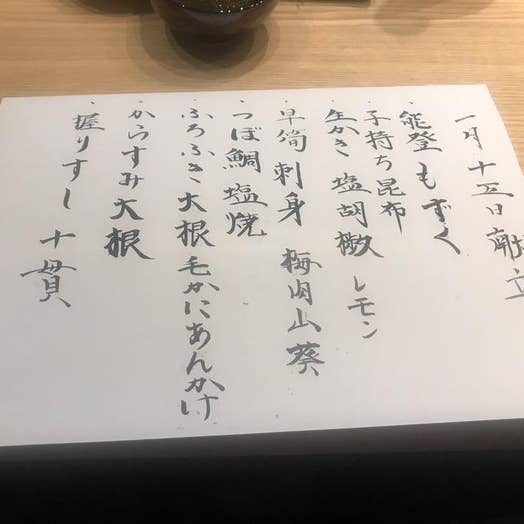 一月十五日献立
・能登もずく
・子持ち昆布
・生かき 塩胡椒 レモン
・早筍刺身 梅肉山葵
・つぼ鯛塩焼
・ふろふき大根毛かにあんかけ
・からすみ大根
・握りすし 十貫